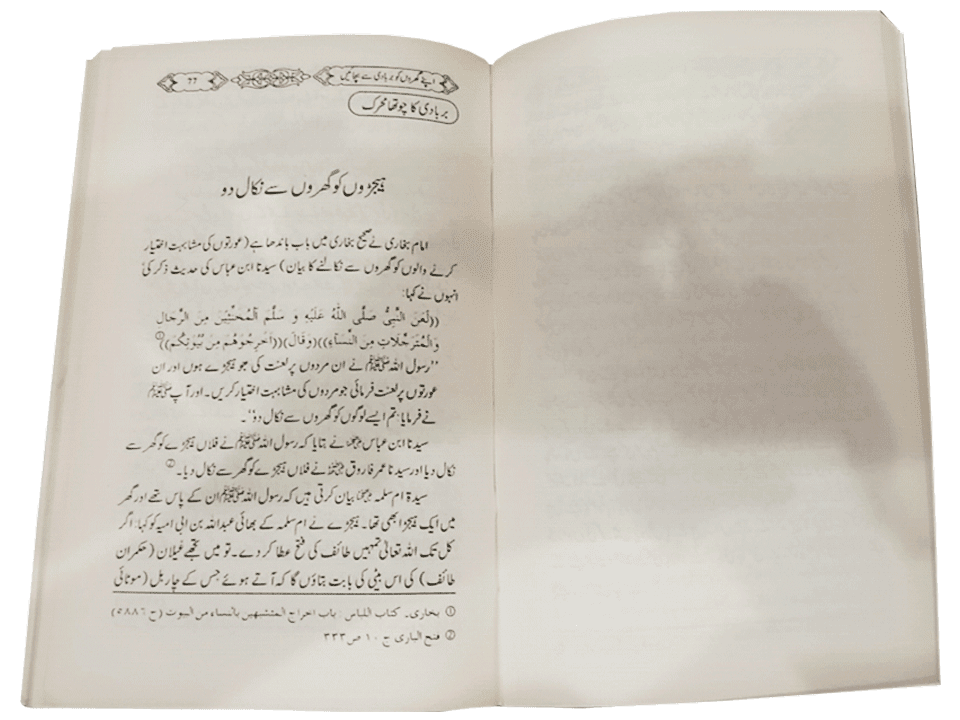 اپنے گھروں کو بربادی سے بچائیں
۷۷
بربادی کا چوتھا محرک
ہیجڑوں کو گھروں سے نکال دو
امام بخاری نے صحیح بخاری میں باب باندھا ہے (عورتوں کی مشابہت اختیار
کرنے والوں کو گھروں سے نکالنے کا بیان) سیدنا ابن عباس کی حدیث ذکر کی
انہوں نے کہا:
((لَعَنَ النَّبِيُّ صَلَّى اللّٰهُ عَلَيْهِ وَ سَلَّمَ الْمُخَنَّثِيْنَ مِنَ الرِّجَالِ
وَالْمُتَرَجِّلَاتِ مِنَ النِّسَآءِ))(وَقَالَ)((اَخْرِجُوْهُمْ مِنْ بُيُوْتِكُمْ))①
’’رسول اللہ ﷺ نے ان مردوں پر لعنت کی جو ہیجڑے ہوں اور ان
عورتوں پر لعنت فرمائی جو مردوں کی مشابہت اختیار کریں۔ اور آپ ﷺ
نے فرمایا: تم ایسے لوگوں کو گھروں سے نکال دو‘‘۔
سیدنا ابن عباس ؓ نے بتایا کہ رسول اللہ ﷺ نے فلاں ہیجڑے کو گھر سے
نکال دیا اور سیدنا عمر فاروق ؓ نے فلاں ہیجڑے کو گھر سے نکال دیا۔②
سیدۃ ام سلمہ ؓ بیان کرتی ہیں کہ رسول اللہ ﷺ ان کے پاس تھے اور گھر
میں ایک ہیجڑا بھی تھا۔ ہیجڑے نے ام سلمہ کے بھائی عبداللہ بن ابی امیہ کو کہا: اگر
کل تک اللہ تعالیٰ تمہیں طائف کی فتح عطا کر دے۔ تو میں تجھے غیلان (حکمران
طائف) کی اس بیٹی کی بابت بتاؤں گا کہ آتے ہوئے جس کے چار بل (موٹائی
① بخاری۔ کتاب اللباس: باب اخراج المتشبھین بالنساء من البیوت (ح ۵۸۸۶)
② فتح الباری ج ۱۰ ص ۳۳۳